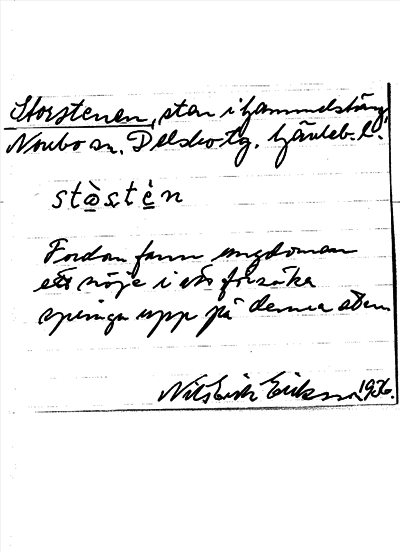 Storstenen, sten i Gammelsträng,
Norrbo sn. Delsbo tg. Gävleb. l.
stò̱s̩tè̱n
Fordom fann ungdomen
ett nöje i att försöka
springa upp på denna sten
Nils Erik Eriksson 1936.